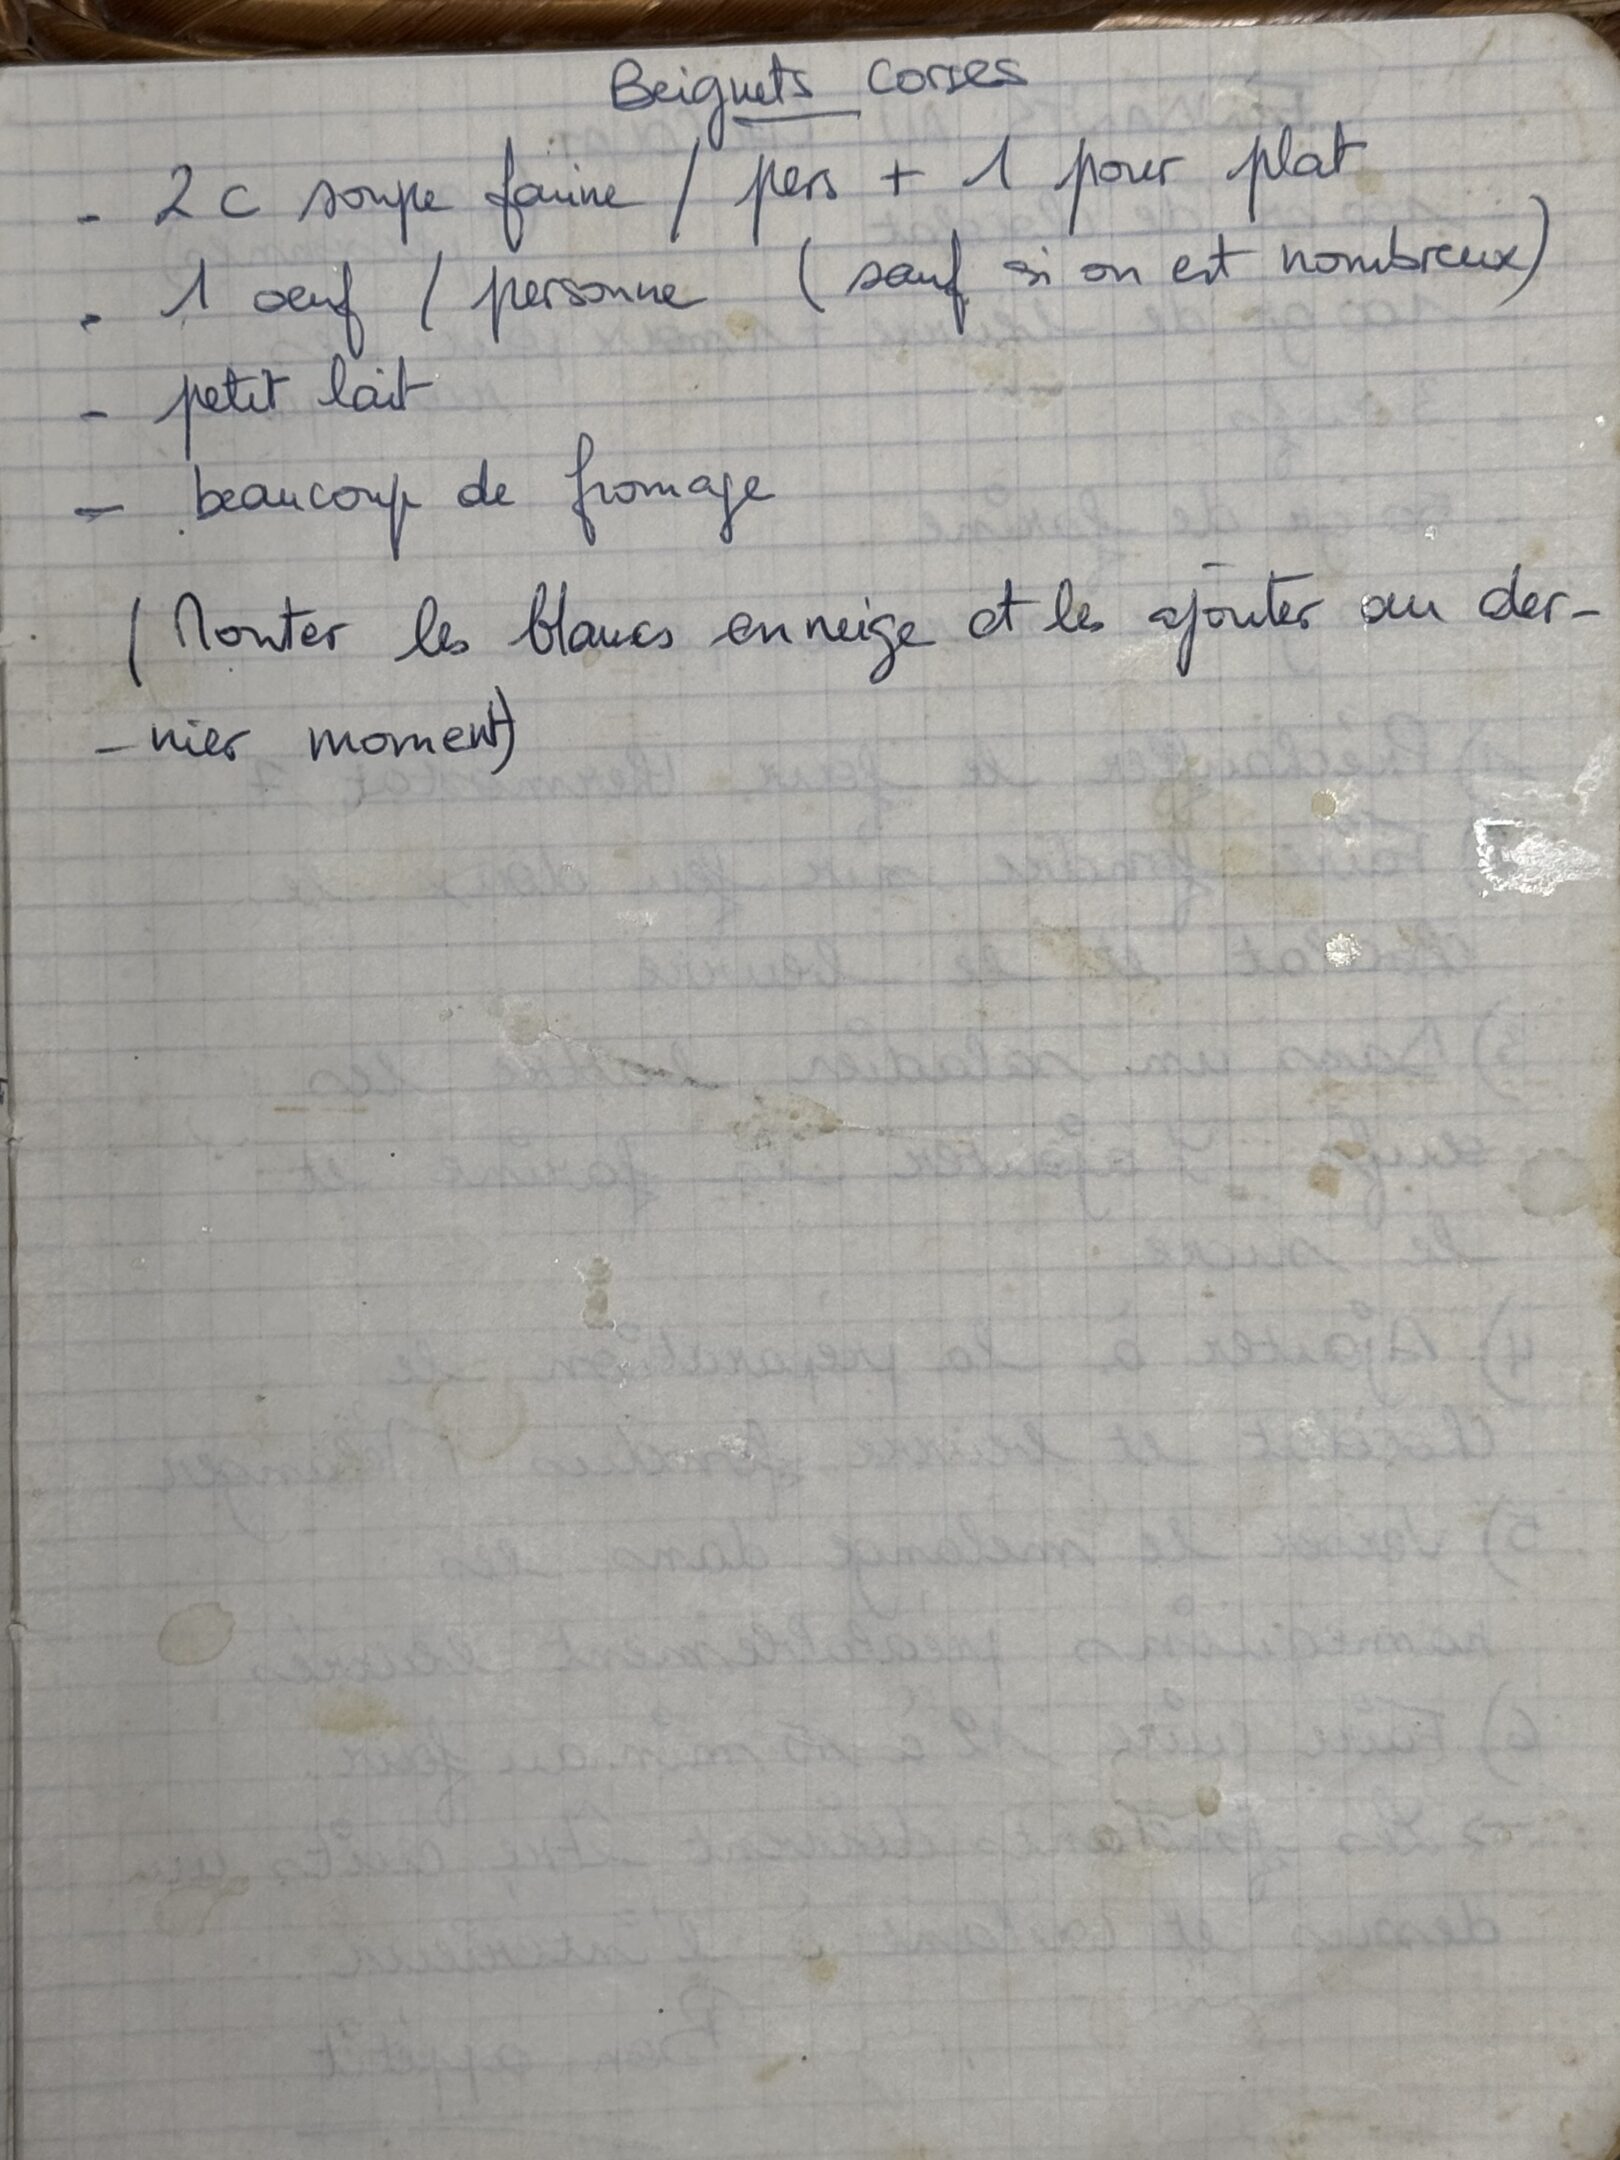 Beignets corses
- 2 c soupe farine / pers + 1 pour plat
- 1 oeuf / personne (sauf si on est nombreux)
- petit lait
- beaucoup de fromage
(Monter les blancs en neige et les ajouter au der-
-nier moment)